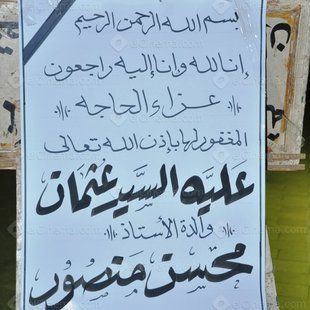 بسم الله الرحمن الرحيم
إنا لله وإنا إليه راجعون
عزاء الحاجه
المغفور لها بإذن الله تعالى
عليه السيد عثمان
والدة الأستاذ
محسن منصور